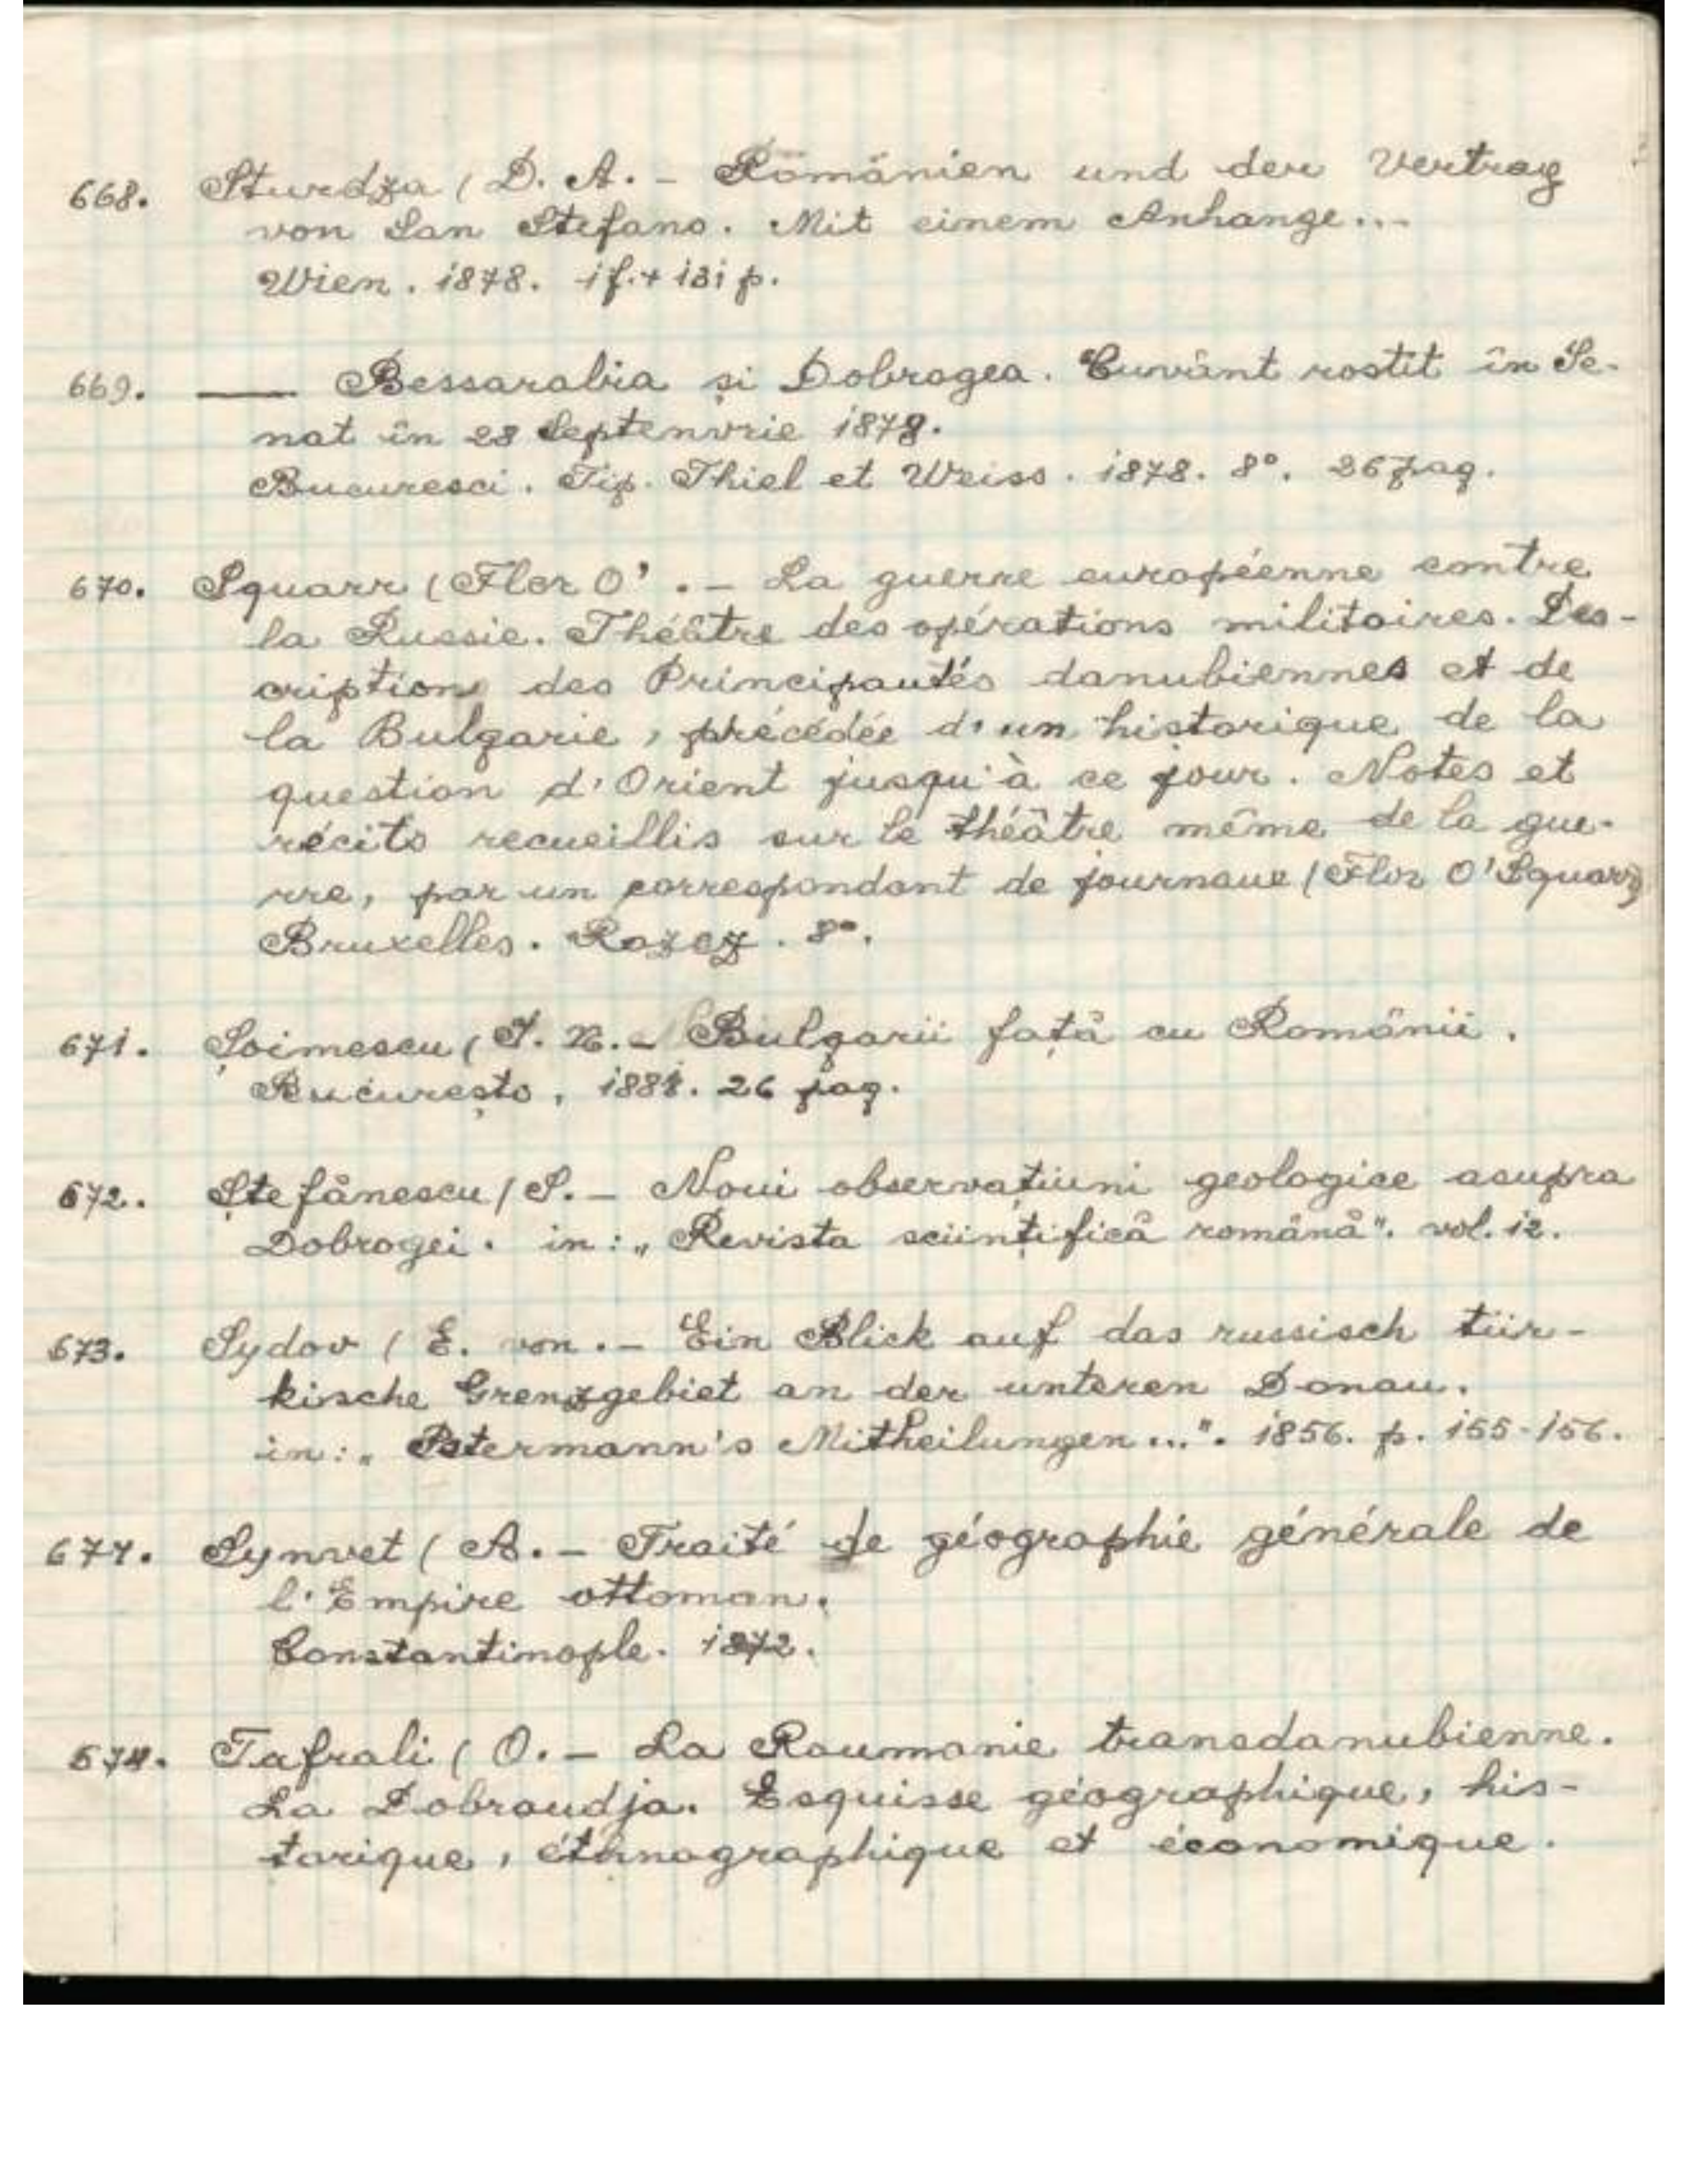 668. Sturdza ( D. A. - Romänien und der Vertrag
von San Stefano. Mit einem Anhange...
Wien. 1878. 1 f. + 131 p.
669. —— Bessarabia și Dobrogea. Cuvânt rostit în Se-
nat în 28 Septenvrie 1878.
Bucuresci. Tip. Thiel et Weiss. 1878. 8°. 26 pag.
670. Squarr ( Flor O' . - La guerre européenne contre
la Russie. Théâtre des opérations militaires. Des-
cription des Principautés danubiennes et de
la Bulgarie, précédée d'un historique de la
question d'Orient jusqu'à ce jour. Notes et
récits recueillis sur le théâtre même de la gue-
rre, par un correspondant de journaux ( Flor O'Squarr)
Bruxelles. Rozez. 8°.
671. Șoimescu ( I. N. - Bulgarii față cu Românii.
București, 1881. 26 pag.
672. Ștefănescu ( S. - Noui observațiuni geologice asupra
Dobrogei. in: „Revista sciințifică română". vol. 12.
673. Sydov ( E. von . - Ein Blick auf das russisch tür-
kische Grenzgebiet an der unteren Donau.
in: „Petermann's Mittheilungen...". 1856. p. 155-156.
674. Synvet ( A. - Traité de géographie générale de
l'Empire ottoman.
Constantinople. 1872.
674. Tafrali ( O. - La Roumanie transdanubienne.
La Dobroudja. Esquisse géographique, his-
torique, éthnographique et économique.